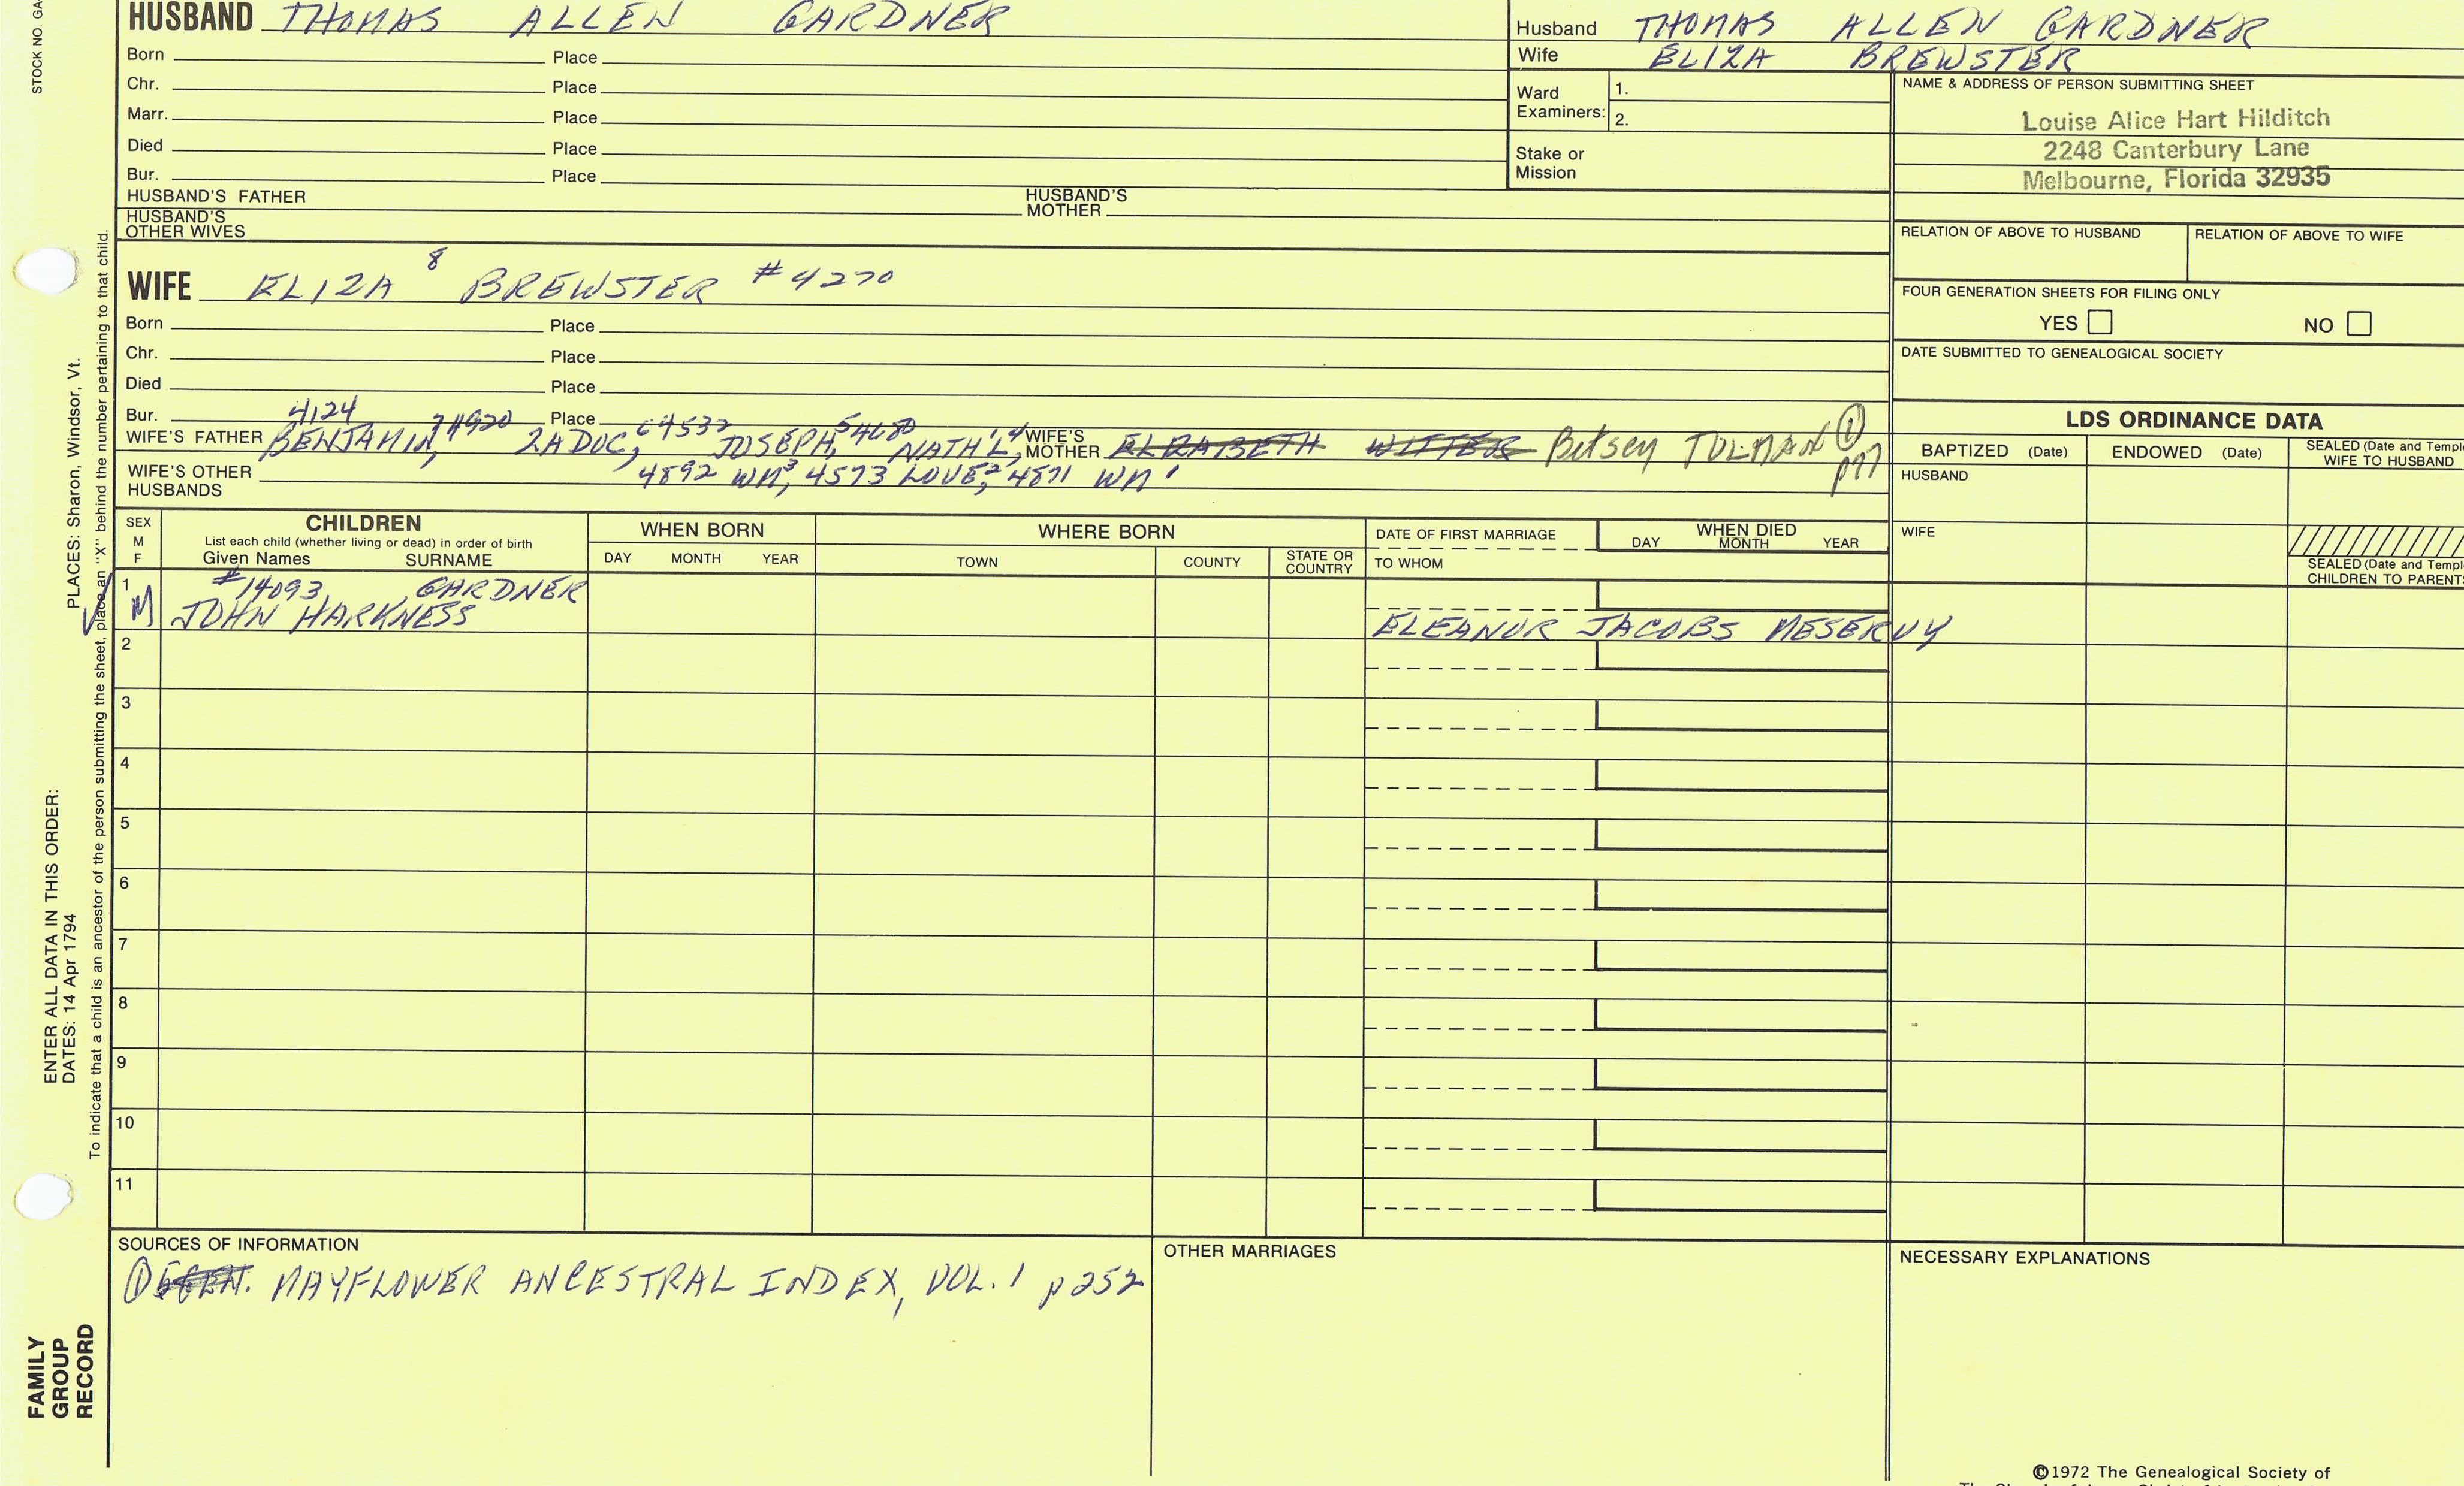 STOCK NO. GA
HUSBAND THOMAS ALLEN GARDNER
Born Place
Chr. Place
Marr. Place
Died Place
Bur. Place
HUSBAND'S FATHER HUSBAND'S MOTHER
HUSBAND'S OTHER WIVES
Husband THOMAS ALLEN GARDNER
Wife ELIZA BREWSTER
Ward Examiners: 1.
2.
Stake or Mission
NAME & ADDRESS OF PERSON SUBMITTING SHEET
Louise Alice Hart Hilditch
2248 Canterbury Lane
Melbourne, Florida 32935
RELATION OF ABOVE TO HUSBAND RELATION OF ABOVE TO WIFE
FOUR GENERATION SHEETS FOR FILING ONLY
YES NO
DATE SUBMITTED TO GENEALOGICAL SOCIETY
WIFE ELIZA 8 BREWSTER #4270
Born Place
Chr. Place
Died Place
Bur. Place
4124 7 4920 6 4532 5 4680 4
WIFE'S FATHER BENJAMIN, ZADOC, JOSEPH, NATH'L, WIFE'S MOTHER ELIZABETH WITTER Betsey TOLMAN ①
4892 WM3, 4573 LOVE2, 4571 WM1 p97
WIFE'S OTHER HUSBANDS
LDS ORDINANCE DATA
BAPTIZED (Date) ENDOWED (Date) SEALED (Date and Templ
WIFE TO HUSBAND
HUSBAND
WIFE
SEALED (Date and Templ
CHILDREN TO PARENTS
SEX M F
CHILDREN
List each child (whether living or dead) in order of birth
Given Names SURNAME
WHEN BORN
DAY MONTH YEAR
WHERE BORN
TOWN COUNTY STATE OR COUNTRY
DATE OF FIRST MARRIAGE
TO WHOM
WHEN DIED
DAY MONTH YEAR
1 #14093 GARDNER
M JOHN HARKNESS ELEANOR JACOBS MESERVY
2
3
4
5
6
7
8
9
10
11
SOURCES OF INFORMATION
① MAYFLOWER ANCESTRAL INDEX, VOL. 1 p252
OTHER MARRIAGES
NECESSARY EXPLANATIONS
©1972 The Genealogical Society of
ENTER ALL DATA IN THIS ORDER:
DATES: 14 Apr 1794
PLACES: Sharon, Windsor, Vt.
To indicate that a child is an ancestor of the person submitting the sheet, place an "X" behind the number pertaining to that child.
FAMILY
GROUP
RECORD